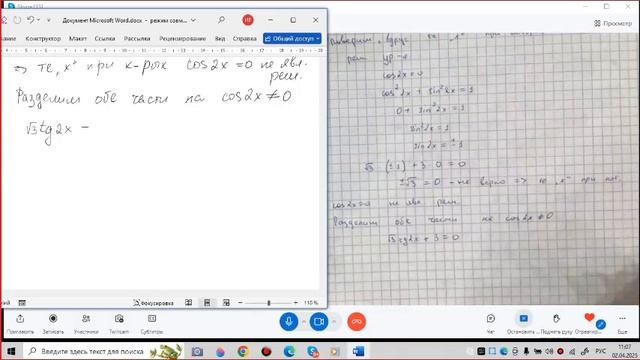 Документ Microsoft Word.docx - режим совм...
НГ
Разделы
Конструктор
Макет
Ссылки
Рассылки
Рецензирование
Вид
Общий доступ
⇒ те "x" при к-рых cos2x=0 не явл.
реш.
Разделим обе части на cos2x≠0
√3tg2x −
Фокусировка
110 %
Просмотр
cos2x=0
cos²2x + sin²2x = 1
0 + sin²2x = 1
sin²2x = 1
sin2x = ±1
√3 · (±1) + 3·0 = 0
±√3 = 0 - не верно => те "x" при
cos2x=0 не явл реш.
Разделим обе части на cos2x≠0
√3tg2x + 3 = 0
Пригласить
Записать
Участники
SMS
Субтитры
Чат
Поднять руку
Отреагировать
Ещё
Введите здесь текст для поиска
РУС
11:07
02.04.2025